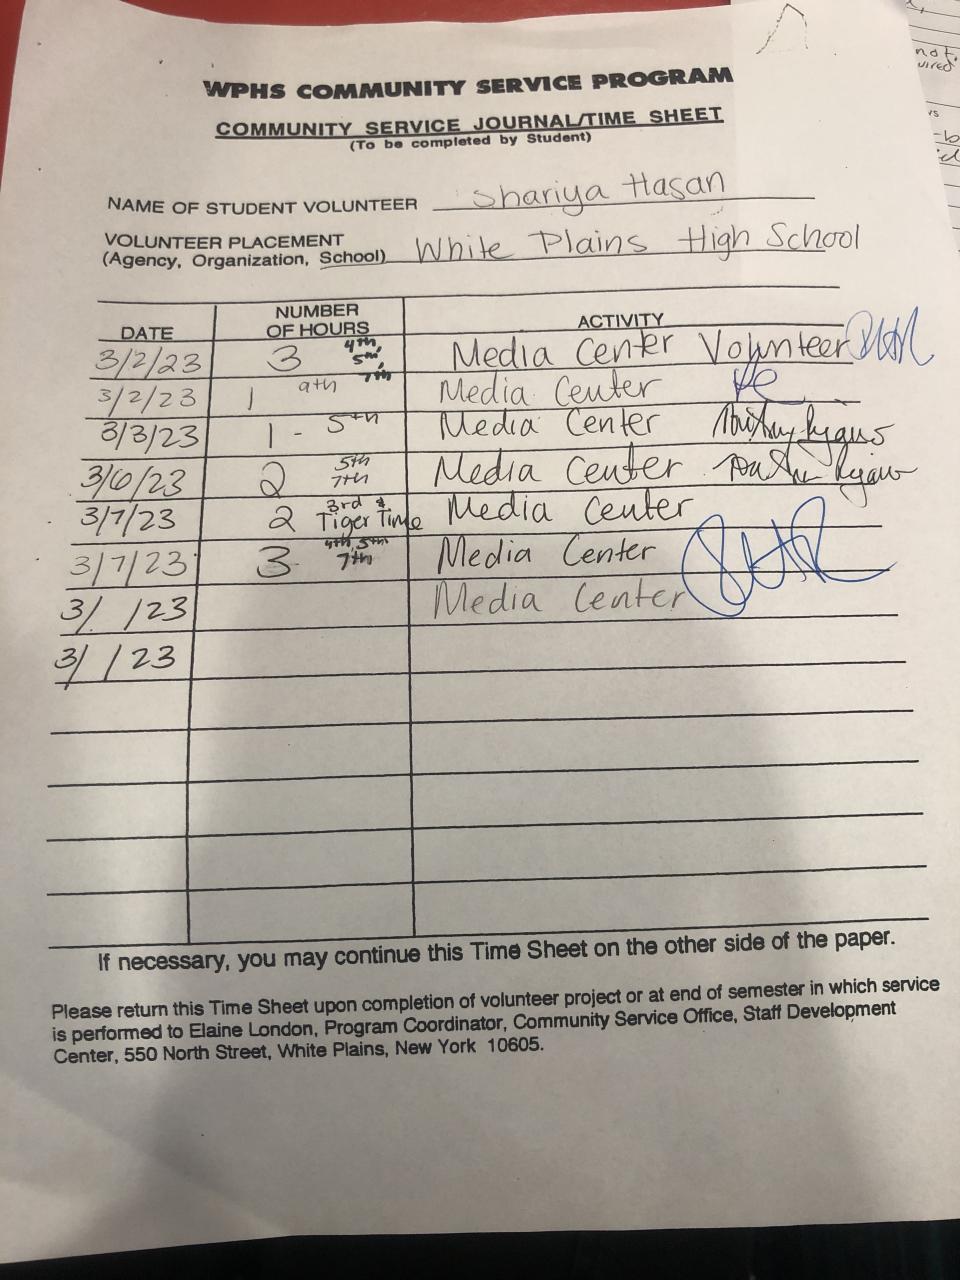 WPHS COMMUNITY SERVICE PROGRAM
COMMUNITY SERVICE JOURNAL/TIME SHEET
(To be completed by Student)
NAME OF STUDENT VOLUNTEER Shariya Hasan
VOLUNTEER PLACEMENT
(Agency, Organization, School) White Plains High School
DATE NUMBER OF HOURS ACTIVITY
3/2/23 3 4th, 5th, 7th Media Center Volunteer
3/2/23 1 9th Media Center
3/3/23 1 - 5th Media Center
3/6/23 2 5th 7th Media Center
3/7/23 2 3rd & Tiger Time Media Center
3/7/23 3 4th, 5th 7th Media Center
3/ /23 Media Center
3/ /23
If necessary, you may continue this Time Sheet on the other side of the paper.
Please return this Time Sheet upon completion of volunteer project or at end of semester in which service
is performed to Elaine London, Program Coordinator, Community Service Office, Staff Development
Center, 550 North Street, White Plains, New York 10605.